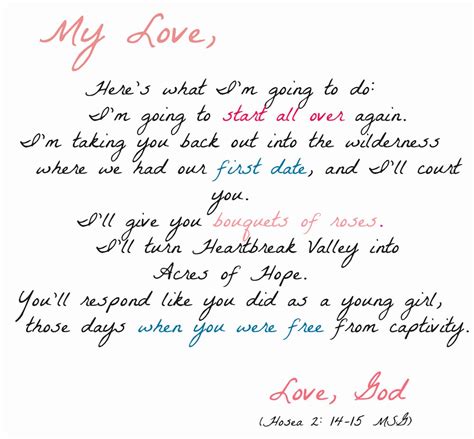 My Love,
Here's what I'm going to do:
I'm going to start all over again.
I'm taking you back out into the wilderness
where we had our first date, and I'll court
you.
I'll give you bouquets of roses.
I'll turn Heartbreak Valley into
Acres of Hope.
You'll respond like you did as a young girl,
those days when you were free from captivity.
Love, God
(Hosea 2: 14-15 MSG)